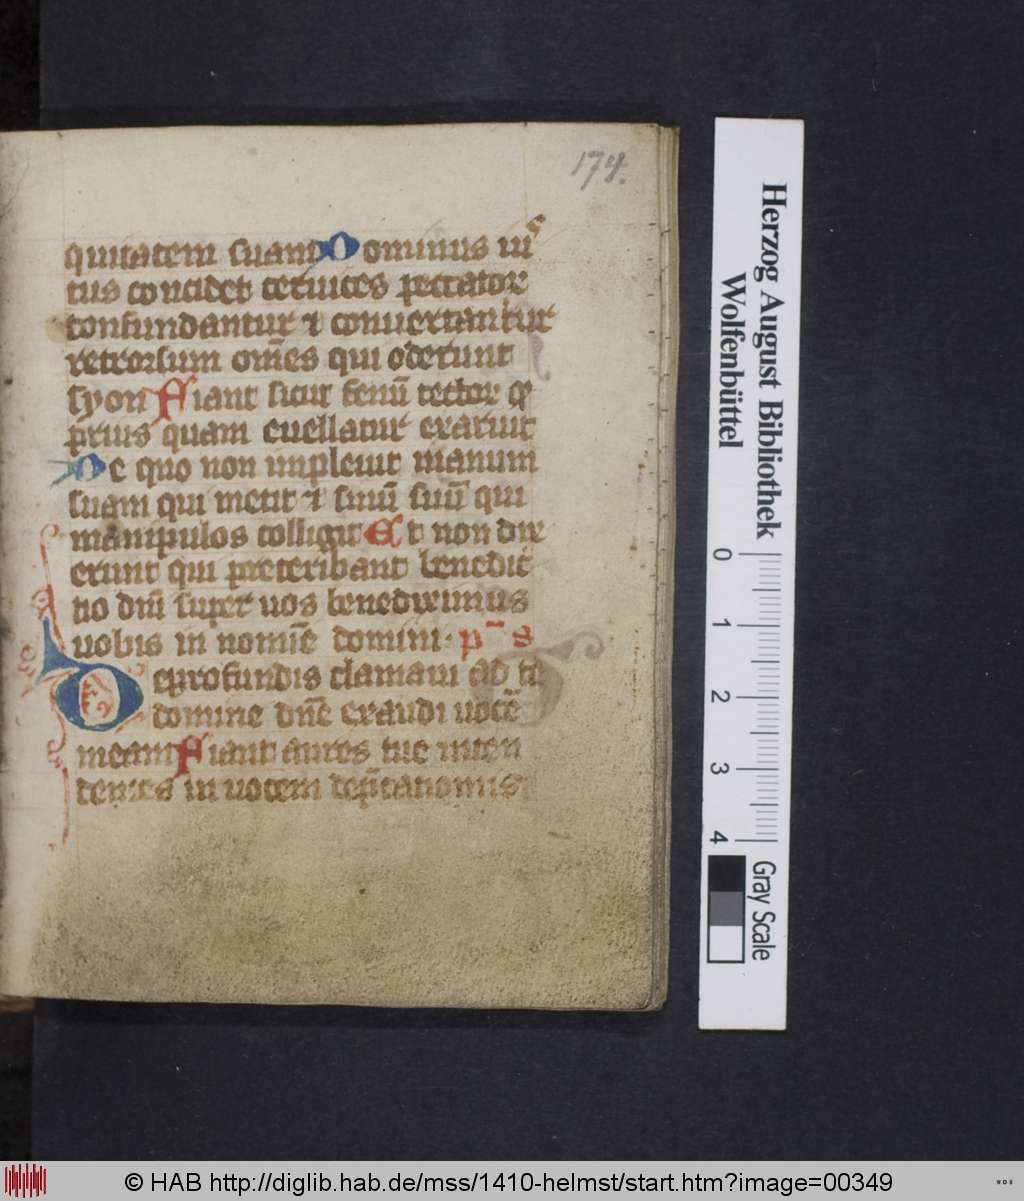 174.
quitatem suam Dominus ius
tus concidet ceruices peccator
confundantur ⁊ conuertantur
retrorsum om̄es qui oderunt
syon Fiant sicut fenū tector q
prius quam euellatur exaruit
De quo non impleuit manum
suam qui metit ⁊ sinū suū qui
manipulos colligit Et non dix
erunt qui preteribant benedic
tio dn̄i super uos benediximus
uobis in nomīe domini· p̄ s
De profundis clamaui ad te
domine dn̄e exaudi uocē
meam Fiant aures tue inten
dentes in uocem dep̄cationis
Herzog August Bibliothek
Wolfenbüttel
0 1 2 3 4
Gray Scale
© HAB http://diglib.hab.de/mss/1410-helmst/start.htm?image=00349